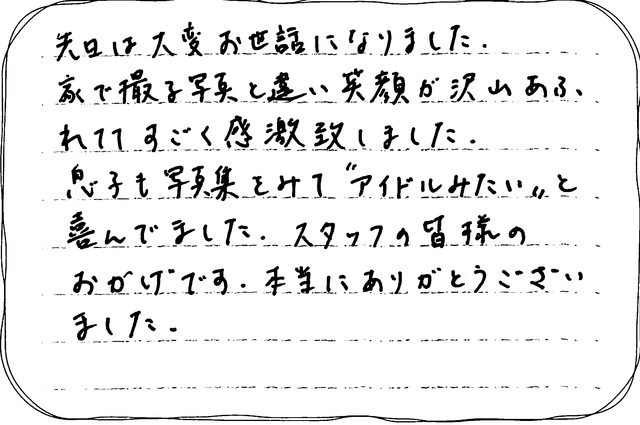 先日は大変お世話になりました.
家で撮る写真と違い笑顔が沢山あふ、
れててすごく感激致しました.
息子も写真集をみて"アイドルみたい"と
喜んでました. スタッフの皆様の
おかげです. 本当にありがとうござい
ました.